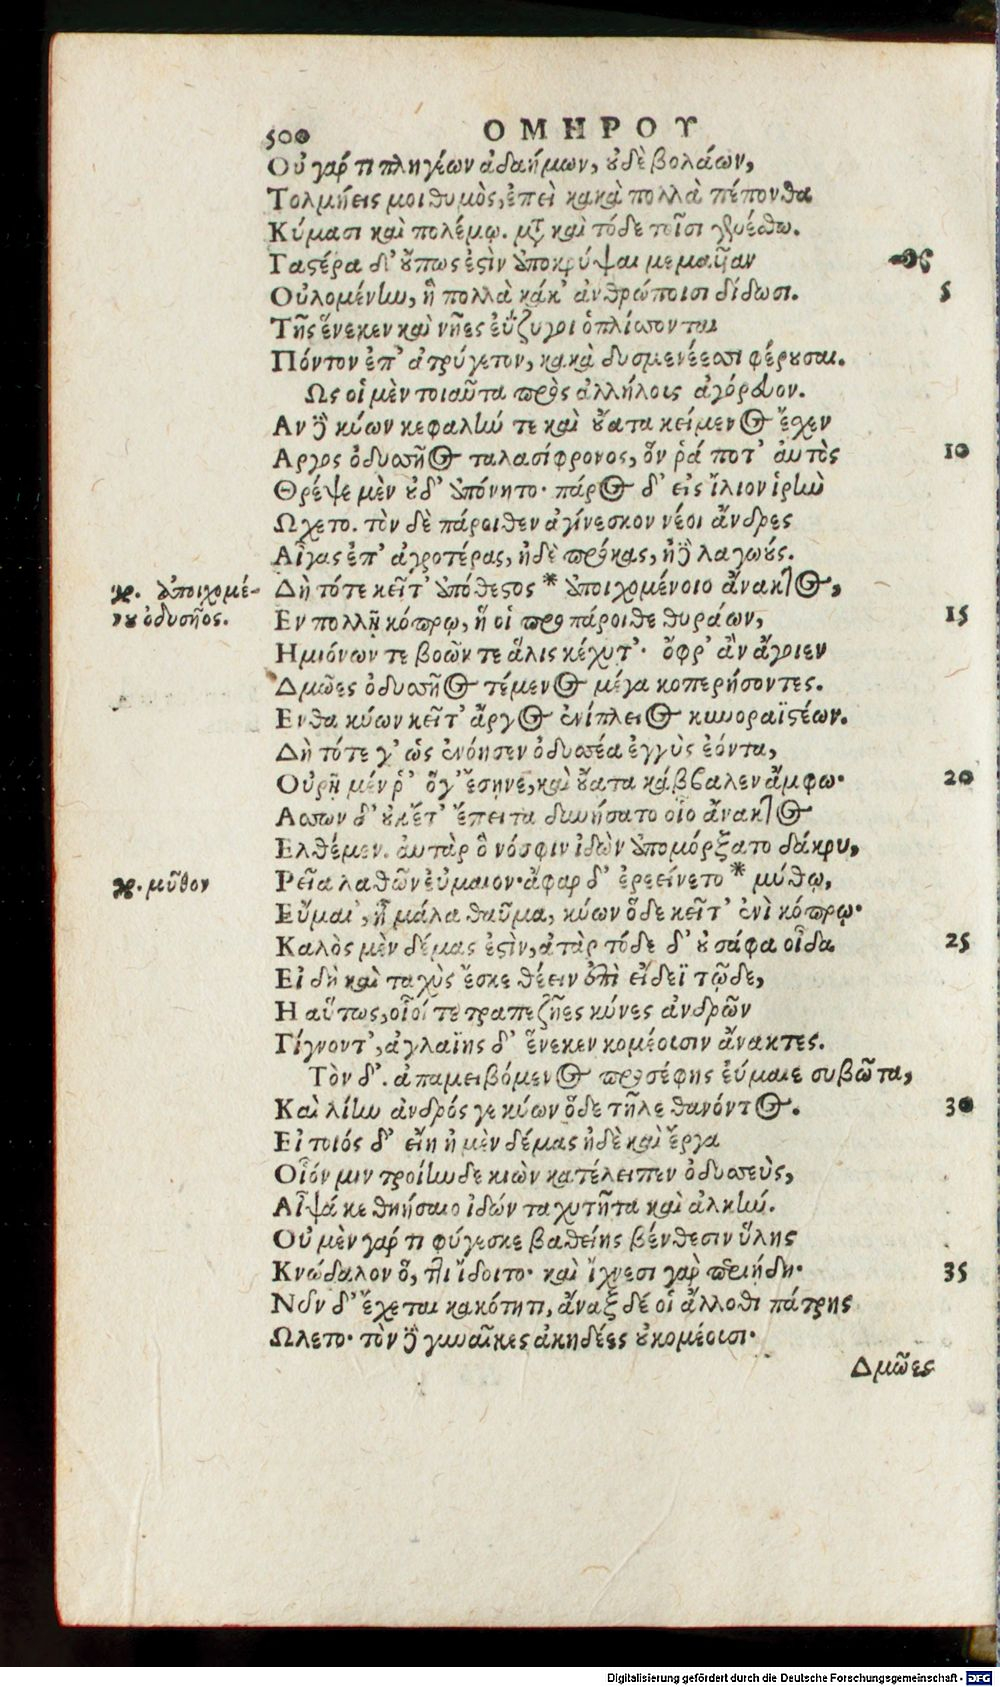 500 ΟΜΗΡΟΥ
Οὐ γάρ τι πληγέων ἀδαήμων, οὐδὲ βολάων,
Τολμήεις μοι θυμὸς, ἐπεὶ κακὰ πολλὰ πέπονθα
Κύμασι καὶ πολέμῳ. μετὰ καὶ τόδε τοῖσι γενέσθω.
Γαστέρα δ' οὔπως ἐστὶν ἀποκρύψαι μεμαυῖαν
Οὐλομένην, ἣ πολλὰ κάκ' ἀνθρώποισι δίδωσι. 5
Τῆς ἕνεκεν καὶ νῆες ἐΰζυγοι ὁπλίζονται
Πόντον ἐπ' ἀτρύγετον, κακὰ δυσμενέεσσι φέρουσαι.
Ως οἱ μὲν τοιαῦτα πρὸς ἀλλήλοις ἀγόρευον.
Αν δὲ κύων κεφαλήν τε καὶ οὔατα κείμενος ἔσχεν
Αργος ὀδυσσῆος ταλασίφρονος, ὅν ῥά ποτ' ἀυτὸς 10
Θρέψε μὲν οὐδ' ἀπόνητο· πάρος δ' εἰς ἴλιον ἱρὴν
Ωχετο. τὸν δὲ πάροιθεν ἀγίνεσκον νέοι ἄνδρες
Αἶγας ἐπ' ἀγροτέρας, ἠδὲ πρόκας, ἠδὲ λαγωούς.
γρ. ἀποιχομέ- Δὴ τότε κεῖτ' ἀπόθεστος * ἀποιχομένοιο ἄνακτος,
νου ὀδυσῆος. Εν πολλῇ κόπρῳ, ἥ οἱ προπάροιθε θυράων, 15
Ημιόνων τε βοῶν τε ἅλις κέχυτ'· ὄφρ' ἂν ἄγοιεν
Δμῶες ὀδυσσῆος τέμενος μέγα κοπρήσοντες.
Ενθα κύων κεῖτ' ἄργος ἐνίπλειος κυνοραϊστέων.
Δὴ τότε γ' ὡς ἐνόησεν ὀδυσσέα ἐγγὺς ἐόντα,
Οὐρῇ μέν ῥ' ὅγ' ἔσηνε, καὶ οὔατα κάββαλεν ἄμφω· 20
Ασσον δ' οὐκέτ' ἔπειτα δυνήσατο οἷο ἄνακτος
Ελθέμεν. ἀυτὰρ ὃ νόσφιν ἰδὼν ἀπομόρξατο δάκρυ,
γρ. μῦθον Ρεῖα λαθὼν εὔμαιον· ἄφαρ δ' ἐρεείνετο * μύθῳ,
Εὔμαι', ἦ μάλα θαῦμα, κύων ὅδε κεῖτ' ἐνὶ κόπρῳ·
Καλὸς μὲν δέμας ἐστὶν, ἀτὰρ τόδε δ' οὐ σάφα οἶδα 25
Εἰ δὴ καὶ ταχὺς ἔσκε θέειν ἐπὶ εἴδεϊ τῷδε,
Η αὕτως, οἷοί τε τραπεζῆες κύνες ἀνδρῶν
Γίγνοντ', ἀγλαΐης δ' ἕνεκεν κομέοισιν ἄνακτες.
Τὸν δ'. ἀπαμειβόμενος προσέφης εὔμαιε συβῶτα,
Καὶ λίην ἀνδρός γε κύων ὅδε τῆλε θανόντος. 30
Εἰ τοιός δ' εἴη ἠ μὲν δέμας ἠδὲ καὶ ἔργα
Οἷόν μιν τροίηνδε κιὼν κατέλειπεν ὀδυσσεὺς,
Αἶψά κε θηήσαιο ἰδών ταχυτῆτα καὶ ἀλκήν.
Οὐ μὲν γάρ τι φύγεσκε βαθείης βένθεσιν ὕλης
Κνώδαλον ὅ, ττι ἴδοιτο· καὶ ἴχνεσι γὰρ περιήδη· 35
Νῦν δ' ἔχεται κακότητι, ἄναξ δέ οἱ ἄλλοθι πάτρης
Ωλετο· τὸν δὲ γυναῖκες ἀκηδέες οὐ κομέουσι·
Δμῶες
Digitalisierung gefördert durch die Deutsche Forschungsgemeinschaft - DFG